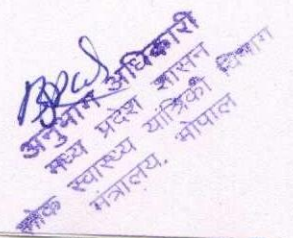 अनुभाग अधिकारी
मध्य प्रदेश शासन
लोक स्वास्थ्य यांत्रिकी विभाग
मंत्रालय, भोपाल